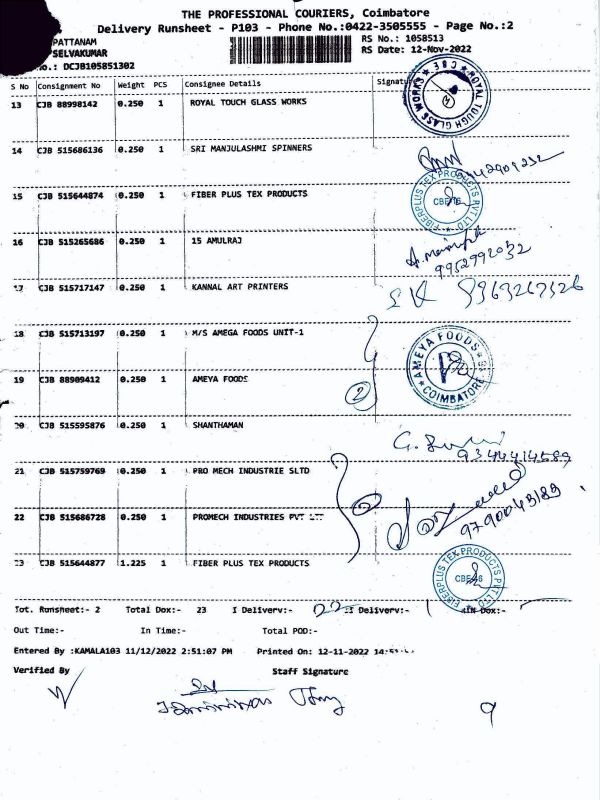 THE PROFESSIONAL COURIERS, Coimbatore
Delivery Runsheet - P103 - Phone No.:0422-3505555 - Page No.:2
PATTANAM RS No.: 1058513
SELVAKUMAR RS Date: 12-Nov-2022
No.: DCJB105851302
S No Consignment No Weight PCS Consignee Details Signature
13 CJB 88998142 0.250 1 ROYAL TOUCH GLASS WORKS
ROYAL TOUGH GLASS WORKS ★ CBE ★
14 CJB 515686136 0.250 1 SRI MANJULASHMI SPINNERS
15 CJB 515644874 0.250 1 FIBER PLUS TEX PRODUCTS
FIBERPLUS TEX PRODUCTS PVT LTD
16 CJB 515265686 0.250 1 15 AMULRAJ
9952992032
17 CJB 515717147 0.250 1 KANNAL ART PRINTERS
18 CJB 515713197 0.250 1 M/S AMEGA FOODS UNIT-1
AMEYA FOODS COIMBATORE
19 CJB 88909412 0.250 1 AMEYA FOODS
2
20 CJB 515595876 0.250 1 SHANTHAMAN
9344414589
21 CJB 515759769 0.250 1 PRO MECH INDUSTRIE SLTD
22 CJB 515686728 0.250 1 PROMECH INDUSTRIES PVT LTD
9790043189
23 CJB 515644877 1.225 1 FIBER PLUS TEX PRODUCTS
FIBERPLUS TEX PRODUCTS PVT LTD
Tot. Runsheet:- 2 Total Dox:- 23 I Delivery:- 22 II Delivery:- 1 Dox:-
Out Time:- In Time:- Total POD:-
Entered By :KAMALA103 11/12/2022 2:51:07 PM Printed On: 12-11-2022
Verified By Staff Signature
9